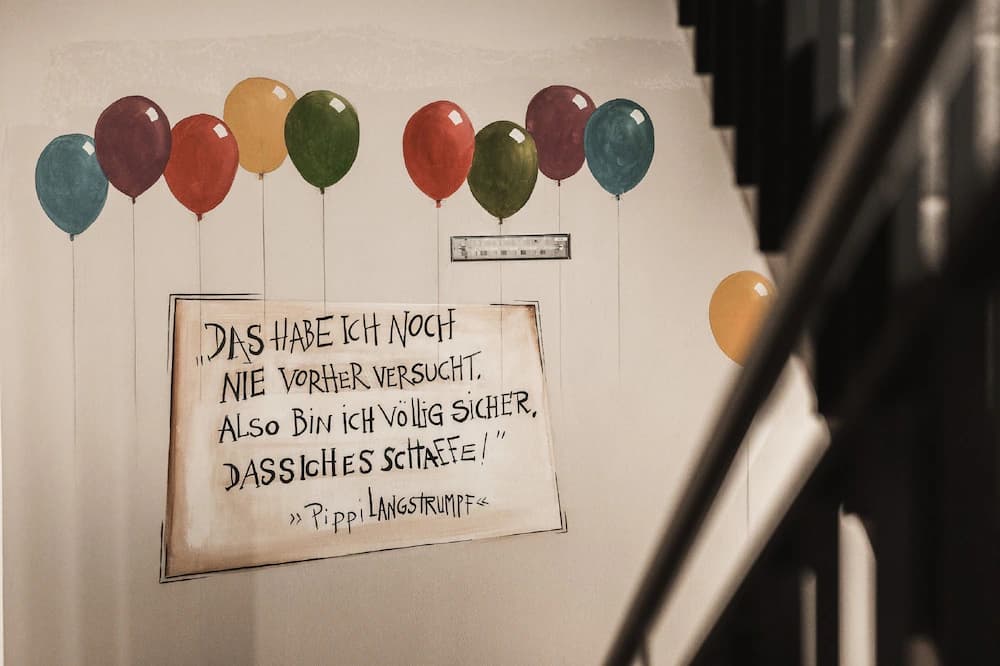 „DAS HABE ICH NOCH
NIE VORHER VERSUCHT.
ALSO BIN ICH VÖLLIG SICHER,
DASS ICH ES SCHAFFE!"
»PippiLANGSTRUMPF«